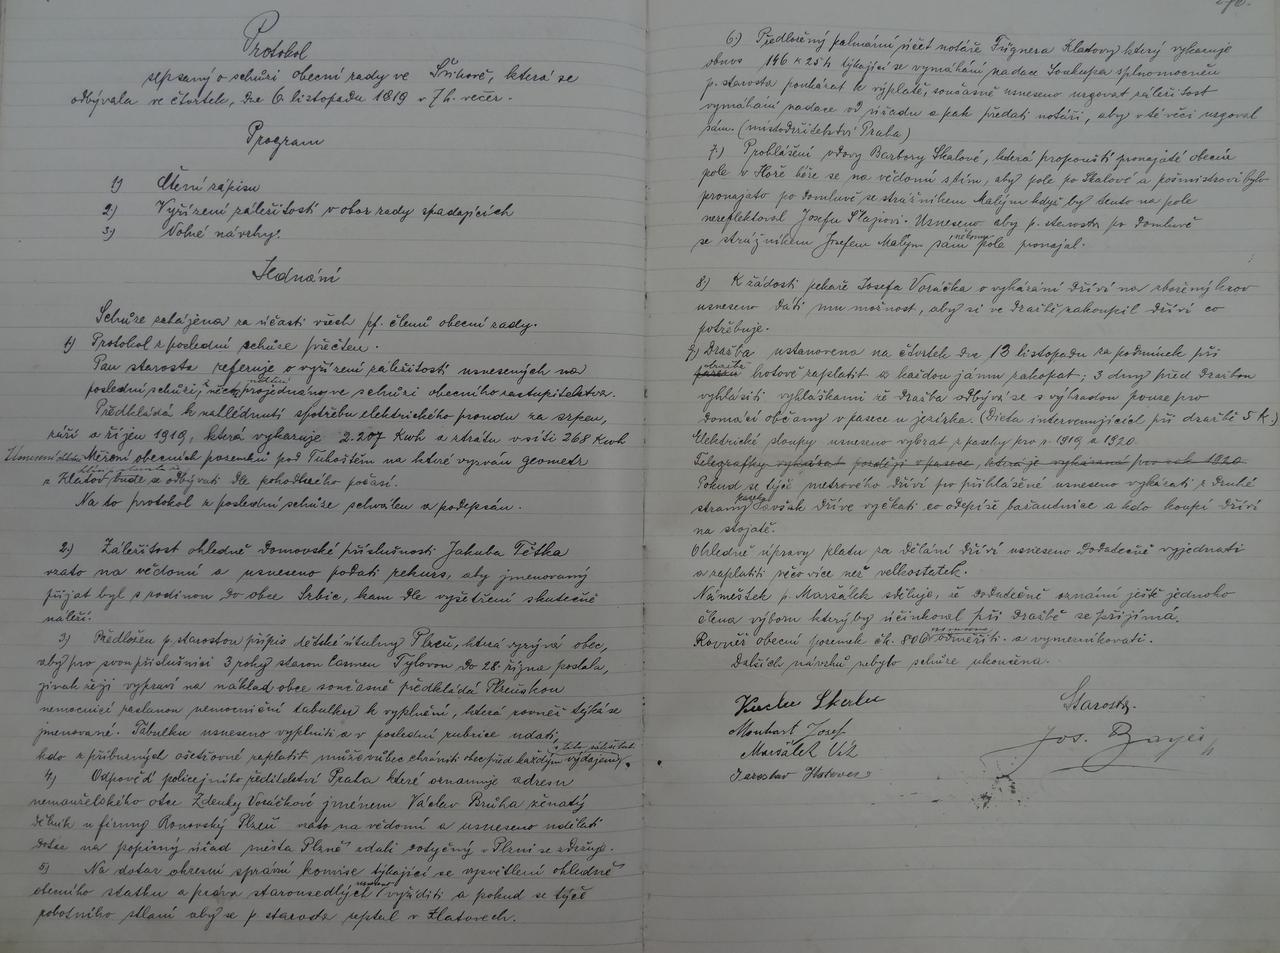 Protokol
sepsaný o schůzi obecní rady ve Švihově, která se
odbývala ve čtvrtek, dne 6 listopadu 1819 v 7 h. večer.
Program
1) Čtení zápisu
2) Vyřízení záležitostí v obor rady spadajících
3) Volné návrhy.
Jednání
Schůze zahájena za účasti všech pp. členů obecní rady.
1) Protokol z poslední schůze přečten.
Pan starosta referuje o vyřízení záležitostí usnesených na
poslední schůzi, projednáno ve schůzi obecního zastupitelstva.
Předkládá k nahlédnutí spotřebu elektrického proudu za srpen,
září a říjen 1919, která vykazuje 2.207 Kwh a ztrátu v síti 268 Kwh
Měření obecních pozemků pod Tuhoštěm na které vyzván geometr
z Klatov, bude se odbývati dle pohodlného počasí.
Na to protokol z poslední schůze schválen a podepsán.
2) Záležitost ohledně domovské příslušnosti Jakuba Tětka
vzato na vědomí a usneseno podati rekurs, aby jmenovaný
přijat byl s rodinou do obce Srbic, kam dle vyšetření skutečně
náleží.
3) Předložen p. starostou přípis dětské útulny Plzeň, která vyzývá obec,
aby pro svou příslušnici 3 roky starou Carmen Tylovou do 28. října poslala,
jinak ji vypraví na náklad obce současně předkládá Plzeňskou
nemocnicí zaslanou nemocniční tabulku k vyplnění, která rovněž týká se
jmenované. Tabulku usneseno vyplniti a v poslední rubrice udati,
kdo z příbuzných ošetřovné zaplatit může vůbec chrániti obec před každým vydajem.
4) Odpověď policejního ředitelství Praha které oznamuje adresu
nemanželského otce Zdenky Voráčkové jménem Václav Brůha ženatý
dělník u firmy Ronovský Plzeň vzato na vědomí a usneseno udělati
dotaz na popisný úřad města Plzně zdali dotyčný v Plzni se zdržuje.
5) Na dotaz okresní správní komise týkající se vysvětlení ohledně
obecního statku a práva starousedlých usneseno vyříditi a pokud se týče
robotního stlaní aby se p starosta zeptal v Klatovech.
6) Předložený palmární účet notáře Fügnera Klatovy který vykazuje
obnos 146 K 25 h týkající se vymáhání nadace Soukupa splnomocněn
p. starosta poukázat k výplatě, současně usneseno urgovat záležitost
vymáhání nadace od úřadu a pak předati notáři, aby v té věci urgoval
sám. (místodržitelství Praha)
7) Prohlášení vdovy Barbory Skalové, která propouští pronajaté obecní
pole v Hoře béře se na vědomí s tím, aby pole po Skalové a pošmistrovi bylo
pronajato po domluvě se strážníkem Malým když by tento na pole
nereflektoval Josefu Slajsovi. Usneseno aby p. starosta po domluvě
se strážníkem Josefem Malým sám někomu pole pronajal.
8) K žádosti pekaře Josefa Voráčka o vykázání dříví na zbořený krov
usneseno dáti mu možnost, aby si ve dražbě zakoupil dříví co
potřebuje.
9) Dražba ustanovena na čtvrtek dne 13 listopadu za podmínek při
hotově zaplatit a každou jámu zakopat; 3 dny před dražbou
vyhlásiti vyhláškami že dražba odbývá se s výhradou pouze pro
domácí občany v pasece u jezírka. (Dieta intervenujících při dražbě 5 K.)
Elektrické sloupy usneseno vybrat z paseky pro r. 1919 a 1920.
Telegrafky vykázat později v pasece, která je vykázaná pro rok 1920.
Pokud se týče metrového dříví pro přihlášené usneseno vykázati z druhé
strany paseky avšak dříve vyčkati co odepíše bažantnice a kdo koupí dříví
na stojatě.
Ohledně úpravy platu za dělání dříví usneseno dodatečně vyjednati
a zaplatiti něco více než velkostatek.
Náměstek p. Maršálek sděluje, že dodatečné uznání ještě jednoho
člena výboru který by účinkoval při dražbě se přijímá.
Rovněž obecní pozemek čk. 806 usneseno odměřiti a vymezníkovati.
Dalších návrhů nebylo schůze ukončena.
Starosta.
Monhart Josef
Jos. Bayer
Maršálek Vít
Jaroslav